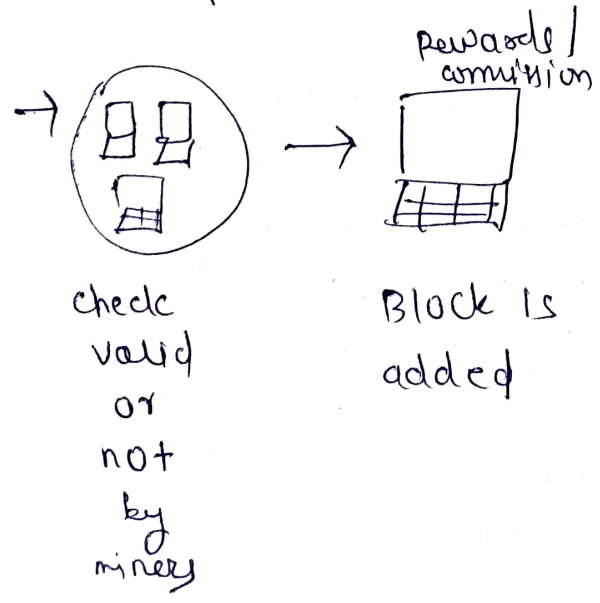 Rewards/
comission
check
valid
or
not
by
miners
Block is
added